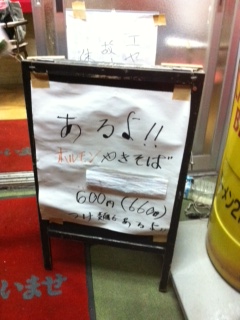 ある♪!!
ホルモンやきそば
600円(660)
つけ麺もあるよ...
いませ